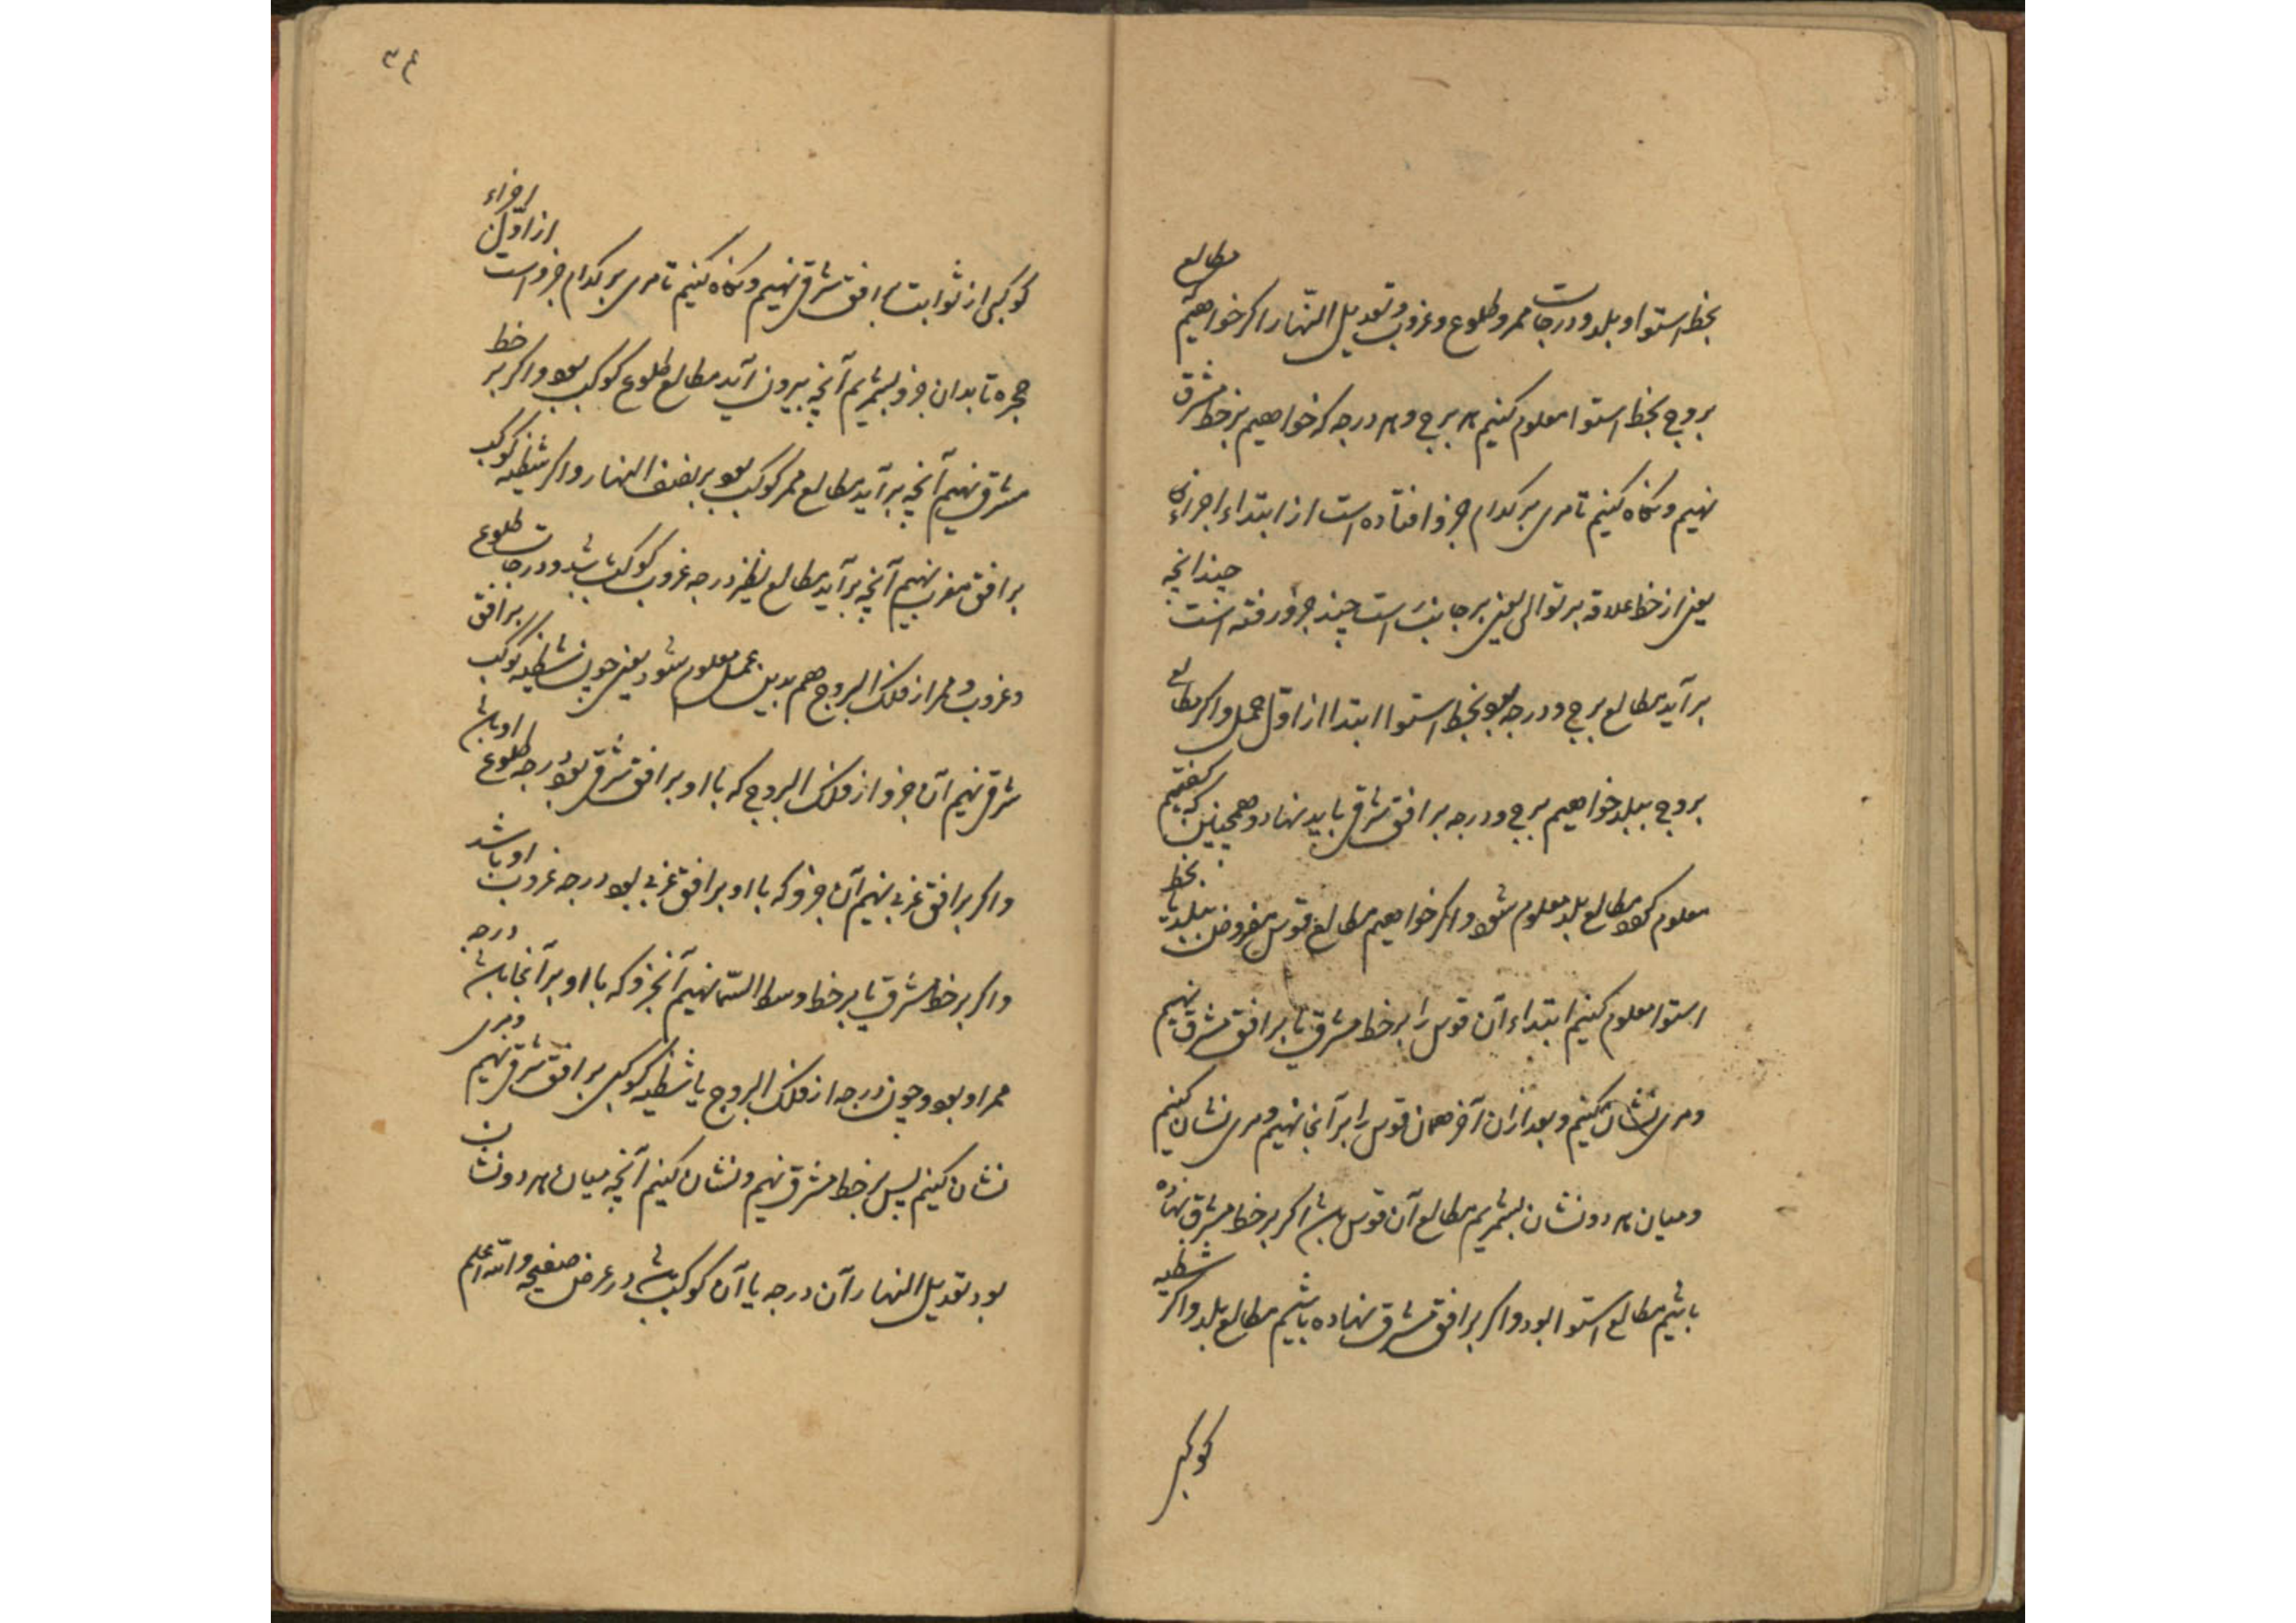 بخط استوا و بلد و درجات ممر و طلوع و غروب و تعدیل النهار اکر خواهیم مطالع
بروج بخط استوا معلوم کنیم هر برج و هر درجه که خواهیم بر خط مشرق
نهیم و نکاه کنیم تا مری بر کدام جزو افتاده است از ابتداء اجزاء
یعنی از خط علاقه بر توالی یعنی بر جانب راست چند جزو رفته است چندانچه
برآید مطالع برج و درجه بود بخط استوا ابتدا از اول حمل و اکر مطالع
بروج ببلد خواهیم برج و درجه بر افق شرقی باید نهاد و همچنین که کفتیم
معلوم کرد مطالع بلد معلوم شود و اکر خواهیم مطالع قوس مفروض ببلد یا بخط
استوا معلوم کنیم ابتداء آن قوس را بر خط مشرق یا بر افق مشرق نهیم
و مری نشان کنیم و بعد از ان آخر همان قوس را بر آنجا نهیم و مری نشان کنیم
و میان هر دو نشان بشمریم مطالع آن قوس باشد اکر بر خط مشرق نهاده
باشیم مطالع استوا بود و اکر بر افق مشرق نهاده باشیم مطالع بلد و اکر شظیه
کوکبی
۳۴
کوکبی از ثوابت بر افق شرقی نهیم و نکاه کنیم تا مری بر کدام جزو است از اول اجزاء
حجره تا بدان جزو بشمریم آنچه بیرون آید مطالع طلوع کوکب بود و اکر بر خط
مشرق نهیم آنچه برآید مطالع ممر کوکب بود بر نصف النهار و اکر شظیه کوکب
بر افق مغرب نهیم آنچه برآید مطالع نظیر درجه غروب کوکب باشد و درجات طلوع
و غروب و ممر از فلک البروج هم بدین عمل معلوم شود یعنی چون شظیه کوکب بر افق
شرقی نهیم آن جزو از فلک البروج که با او بر افق شرقی بود درجه طلوع او باشد
و اکر بر افق غربی نهیم آن جزو که با او بر افق غربی بود درجه غروب او باشد
و اکر بر خط مشرق یا بر خط وسط السما نهیم آنجزو که با او بر آنجا باشد درجه
ممر او بود و چون درجه از فلک البروج یا شظیه کوکبی بر افق شرقی نهیم و مری
نشان کنیم پس بر خط مشرق نهیم و نشان کنیم آنچه میان هر دو نشان
بود تعدیل النهار آن درجه یا آن کوکب باشد در عرض صفیحه والله اعلم